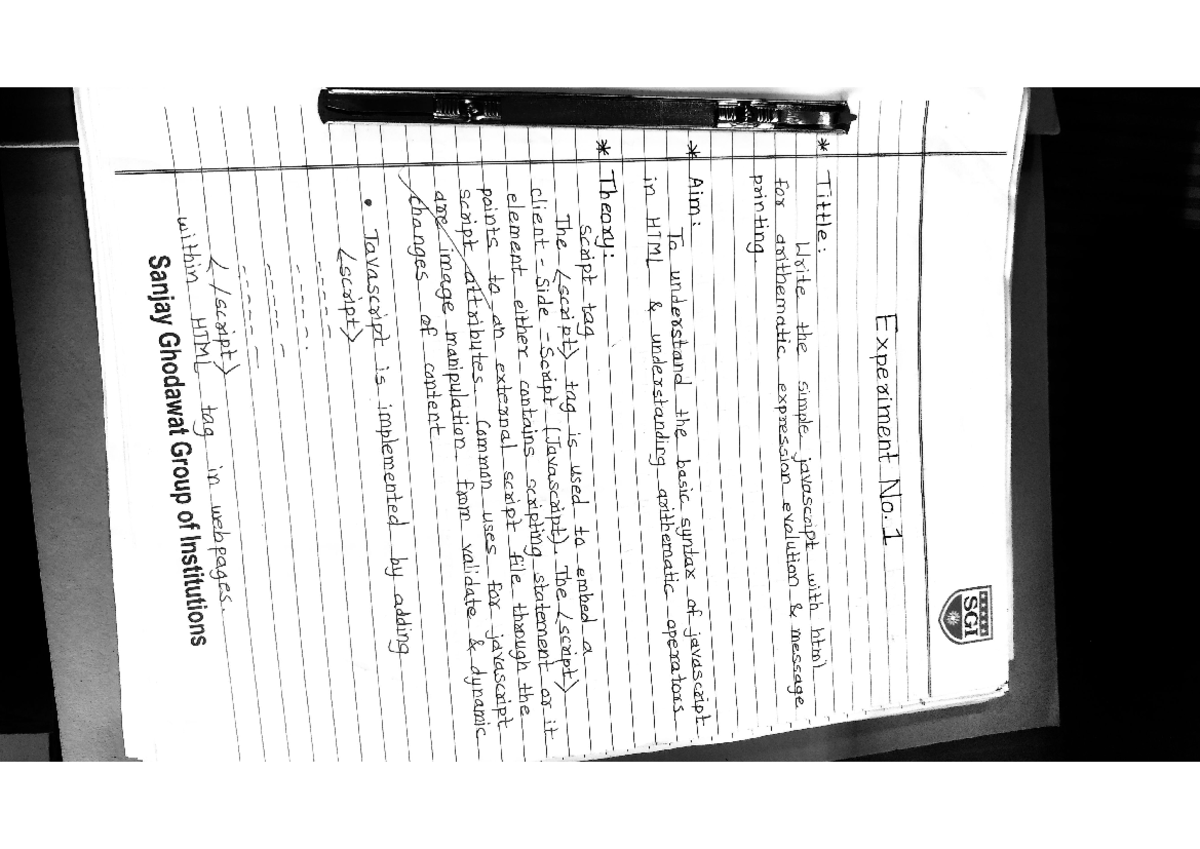 SGI
Experiment No. 1
* Tittle:
Write the simple javascript with html
for arithematic expression evalution & message
printing
* Aim:
To understand the basic syntax of javascript
in HTML & understanding arithematic operators
* Theory:
Script tag
The <script> tag is used to embed a
client - Side - Script (Javascript). The <script>
element either contains scripting statement or it
points to an external script file through the
script attributes. Common uses for javascript
are image manipulation from validate & dynamic
changes of content
• Javascript is implemented by adding
<script>
</script>
within HTML tag in webpages.
Sanjay Ghodawat Group of Institutions